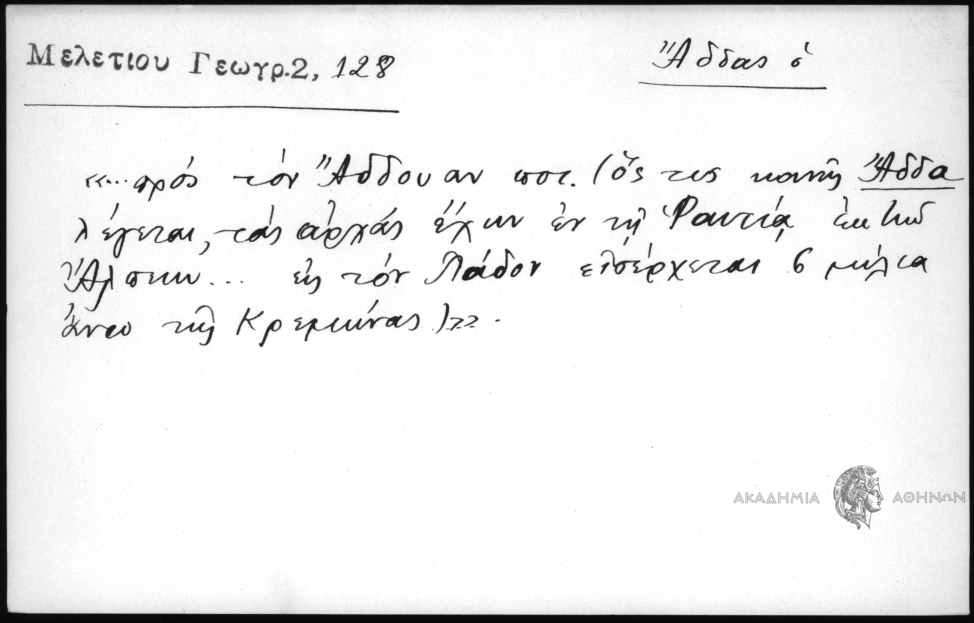 Μελετίου Γεωγρ.2, 128
Ἄδδας ὁ
«...πρός τόν Ἄδδουαν ποτ. (ὅς τις κοινῶς Ἄδδα
λέγεται, τάς ἀρχάς ἔχων ἐν τῇ Ῥαιτίᾳ ἐκ τῶν
Ἄλπεων ... εἰς τόν Πάδον εἰσέρχεται 6 μίλια
ἄνω τῆς Κρεμώνας)».
ΑΚΑΔΗΜΙΑ ΑΘΗΝΩΝ